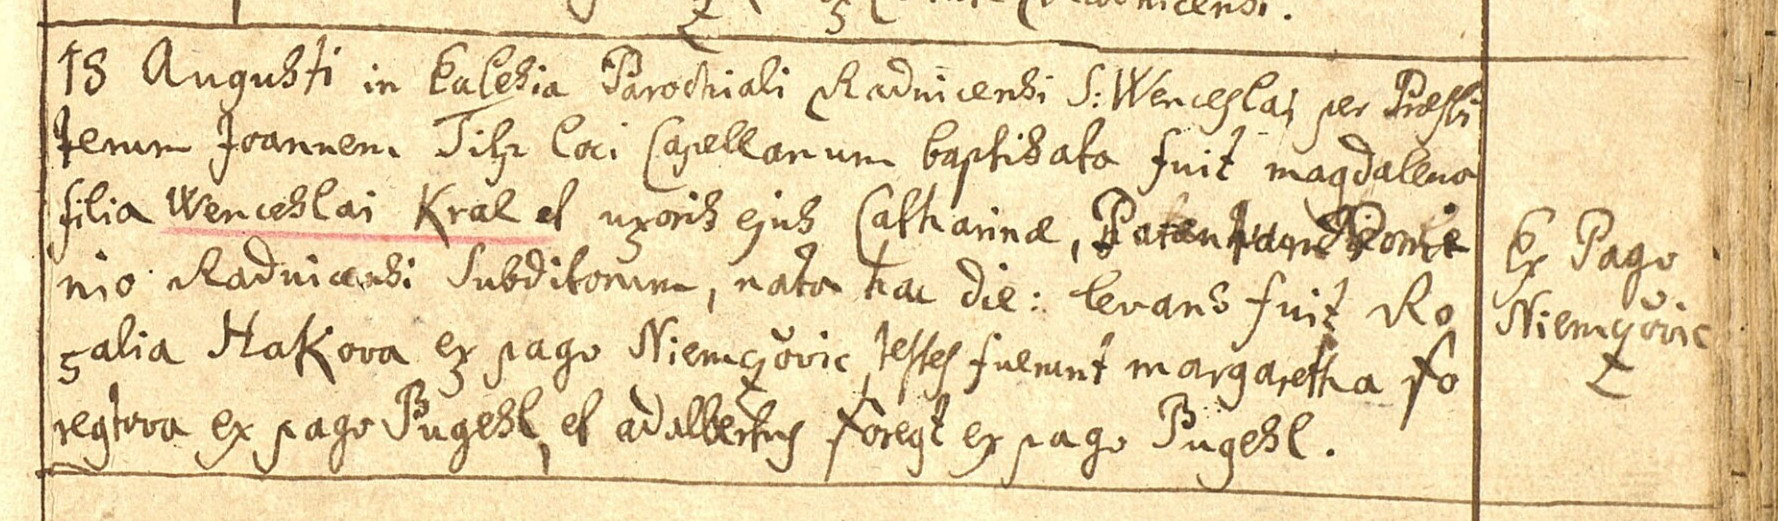 18 Augusti in Ecclesia Parochiali Radnicensi S: Wenceslai per Præsbi
terum Joannem Tilz loci Capellanum baptisata fuit magdalena
filia Wenceslai Kral et uxoris ejus Catharinæ, Parentum Domi
nio Radnicensi Subditorum, nata hac die: levans fuit Ro
zalia Hakova ex pago Niemczovic, testes fuerunt margaretha Fo
regtova ex pago Pugesl, et adalbertus Foregt ex pago Pugesl.
Ex Pago
Niemczovic